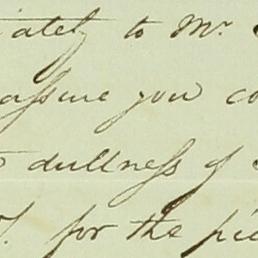 iately to Mr.
assure you co
dullness of
for the pie